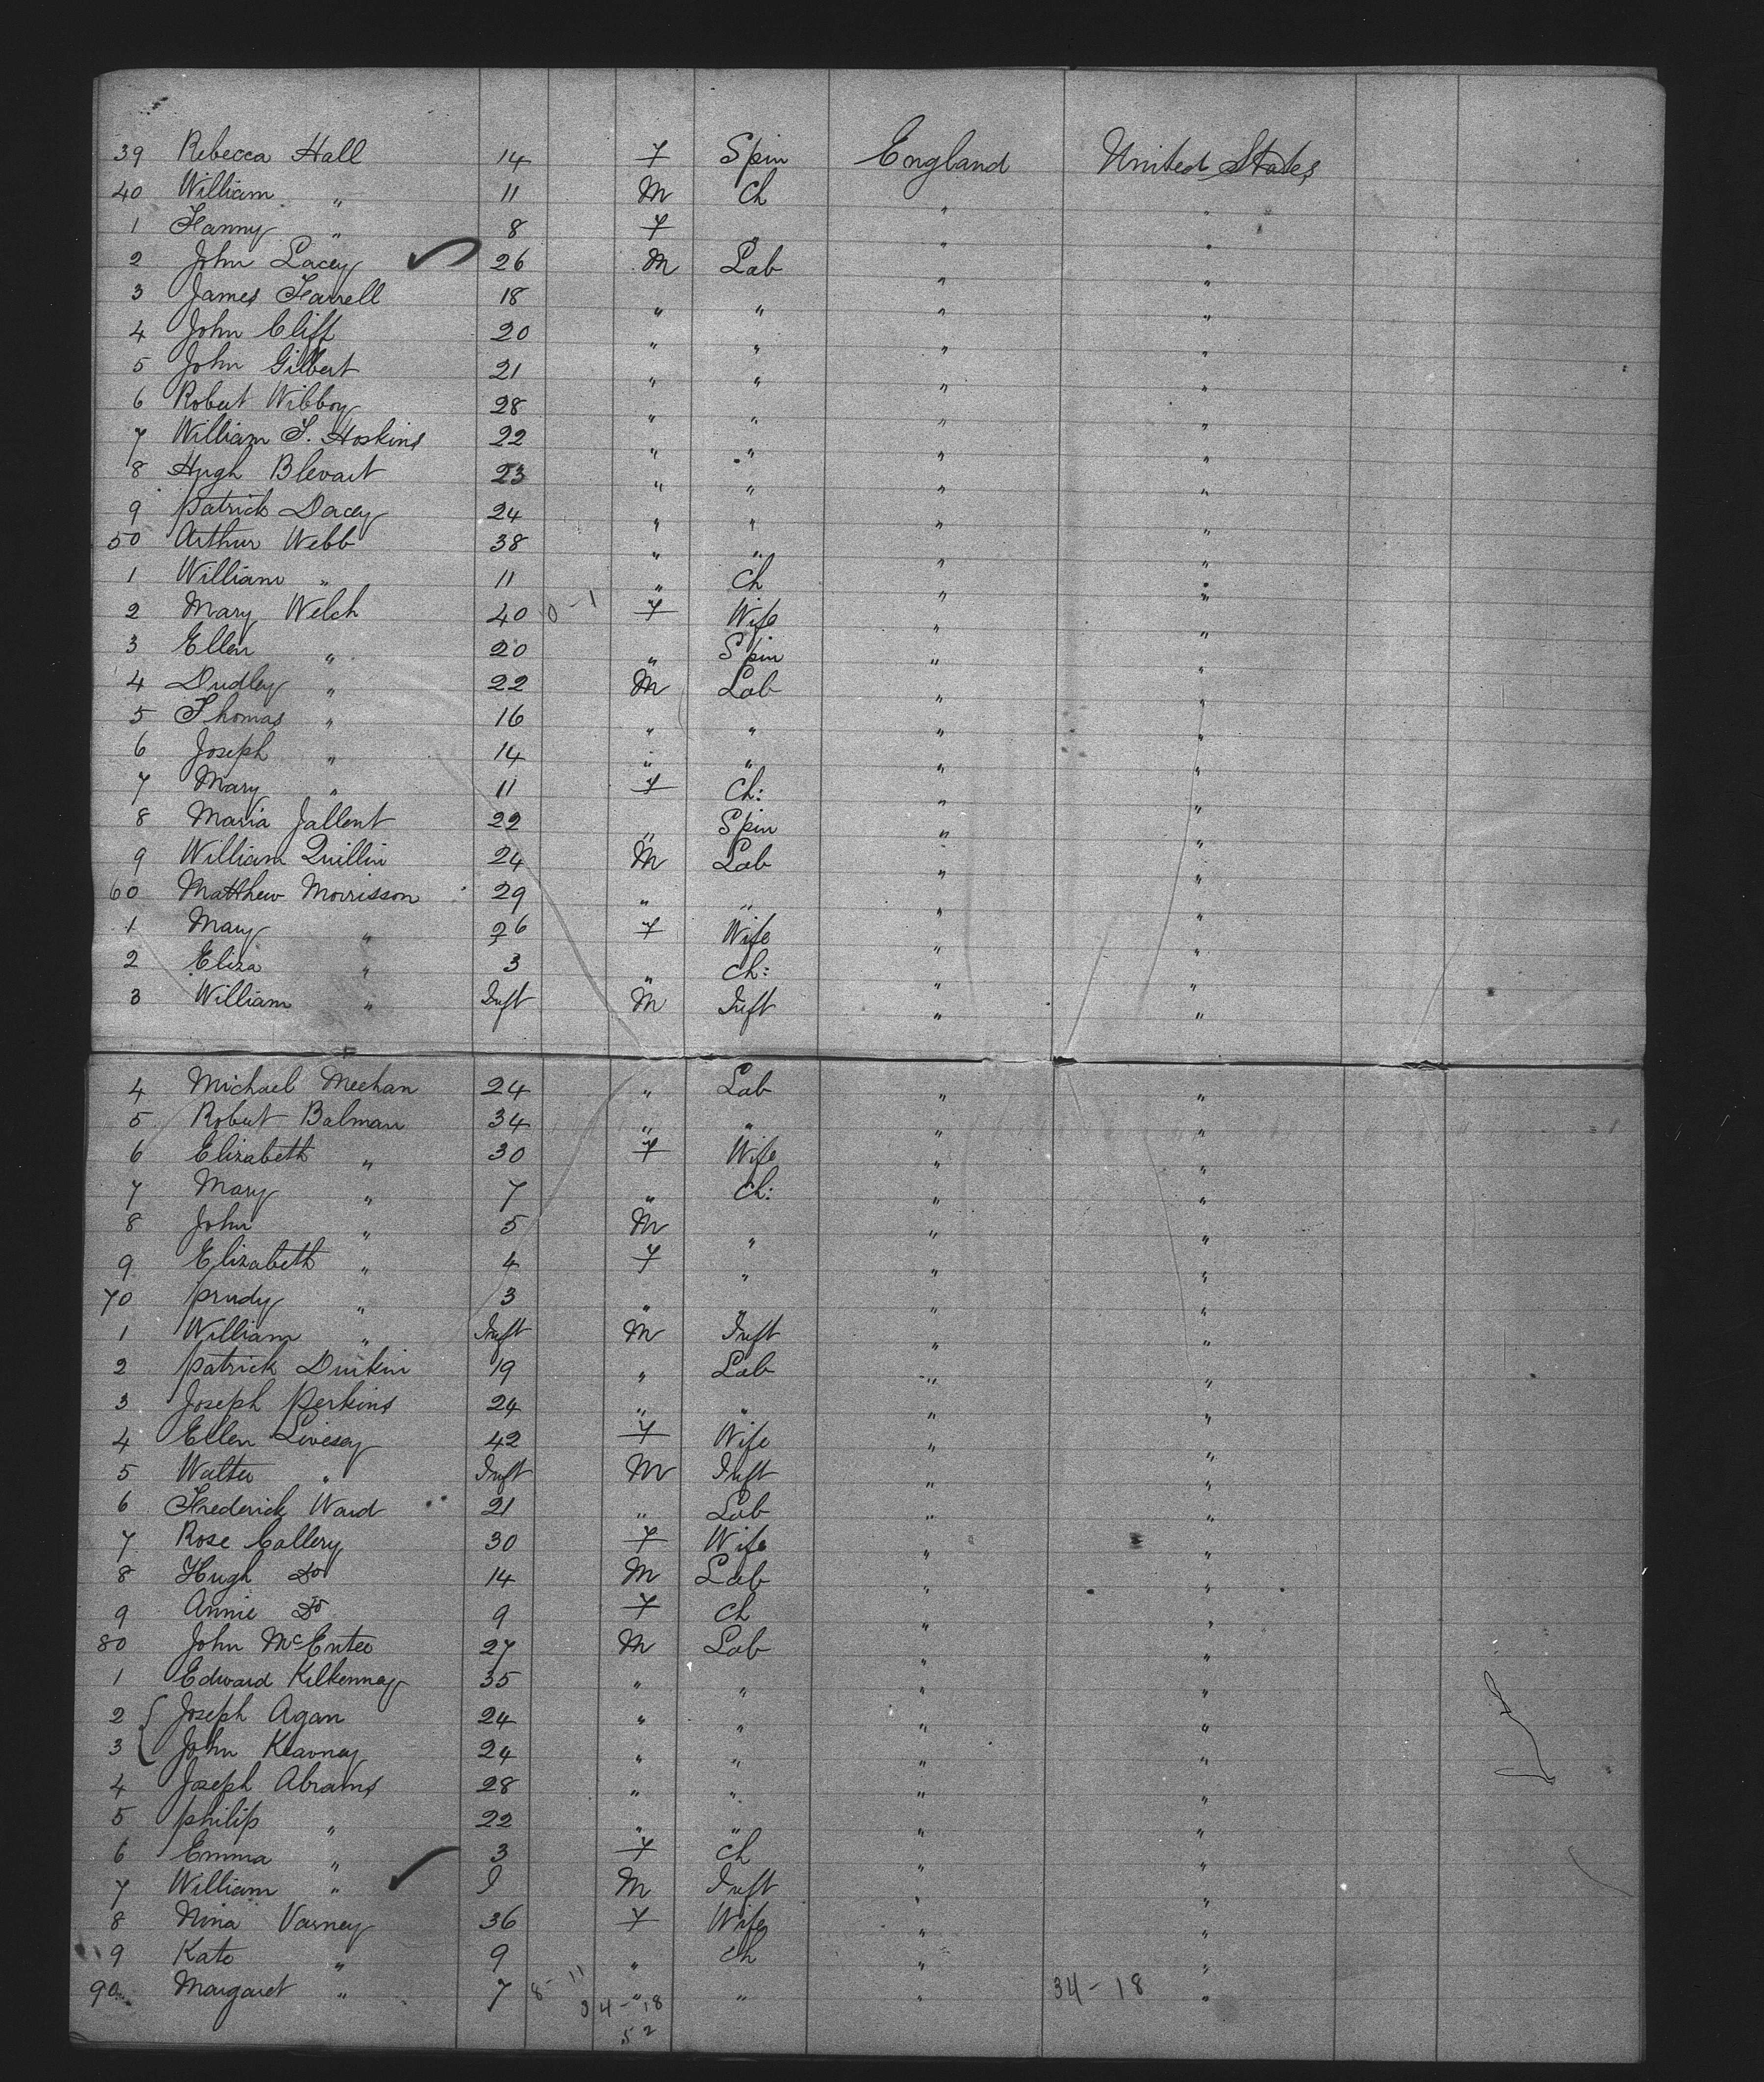 39 Rebecca Hall 14 F Spin England United States
40 William " 11 M Ch " "
1 Fanny " 8 F " " "
2 John Lacey 26 M Lab " "
3 James Farrell 18 " " " "
4 John Cliff 20 " " " "
5 John Gilbert 21 " " " "
6 Robert Wibboy 28 " " " "
7 William S. Hoskins 22 " " " "
8 Hugh Blevart 23 " " " "
9 Patrick Dacey 24 " " " "
50 Arthur Webb 38 " " " "
1 William " 11 " Ch " "
2 Mary Welch 40 0-1 F Wife " "
3 Ellen " 20 " Spin " "
4 Dudley " 22 M Lab " "
5 Thomas " 16 " " " "
6 Joseph " 14 " " " "
7 Mary " 11 F Ch: " "
8 Maria Jallent 22 " Spin " "
9 William Quillin 24 M Lab " "
60 Matthew Morrisson 29 " " " "
1 Mary " 26 F Wife " "
2 Eliza " 3 " Ch: " "
3 William " Inft M Inft " "
4 Michael Meehan 24 " Lab " "
5 Robert Balman 34 " " " "
6 Elizabeth " 30 F Wife " "
7 Mary " 7 " Ch: " "
8 John " 5 M " " "
9 Elizabeth " 4 F " " "
70 Prudy " 3 " " " "
1 William " Inft M Inft " "
2 Patrick Durkin 19 " Lab " "
3 Joseph Perkins 24 " " " "
4 Ellen Livesey 42 F Wife " "
5 Walter " Inft M Inft " "
6 Frederick Ward 21 " Lab " "
7 Rose Callery 30 F Wife " "
8 Hugh Do 14 M Lab " "
9 Annie Do 9 F Ch " "
80 John McEntee 27 M Lab " "
1 Edward Kilkenney 35 " " " "
2 Joseph Agan 24 " " " "
3 John Kearney 24 " " " "
4 Joseph Abrams 28 " " " "
5 Philip " 22 " " " "
6 Emma " 3 F Ch " "
7 William " I M Inft " "
8 Nina Varney 36 F Wife " "
9 Kate " 9 " Ch " "
90 Margaret " 7 8-11 " " " 34-18 "
34-18
52